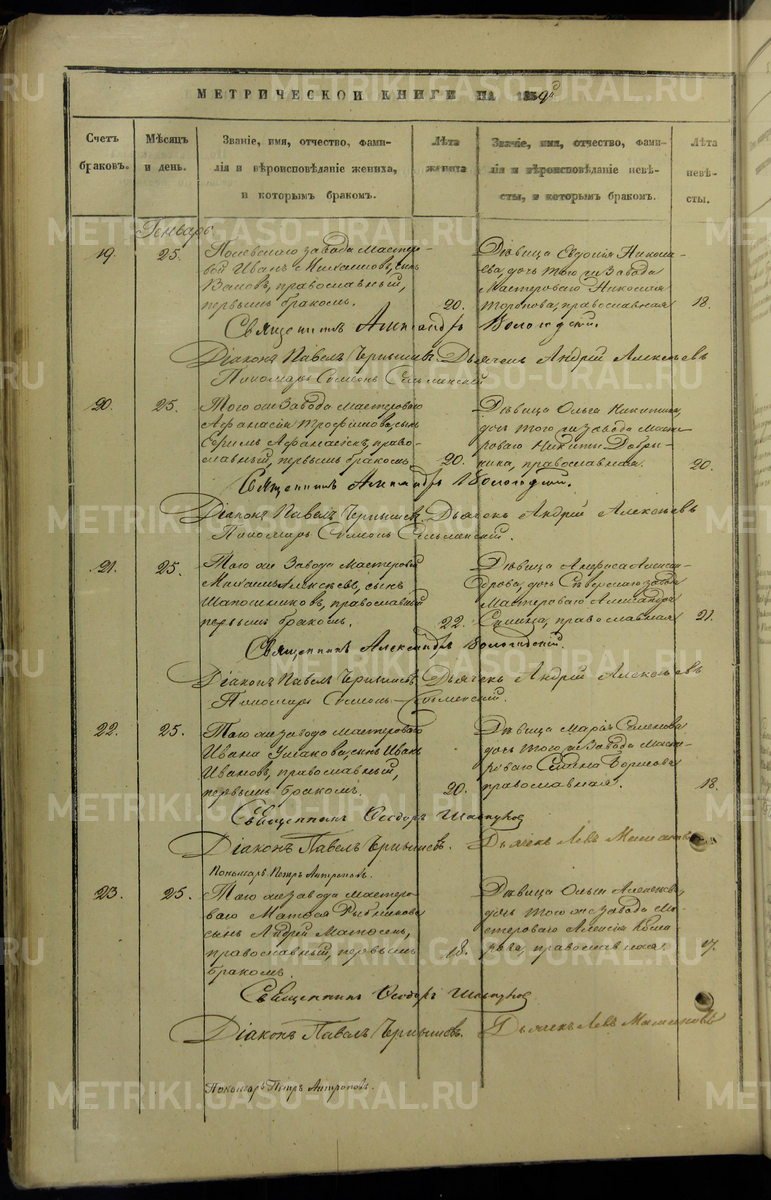 МЕТРИЧЕСКОЙ КНИГИ НА 1859й
Счетъ браковъ.
Мѣсяцъ и день.
Званіе, имя, отчество, фами-
лія и вѣроисповѣданіе жениха,
и которымъ бракомъ.
Лѣта жениха
Званіе, имя, отчество, фами-
лія и вѣроисповѣданіе невѣ-
сты, и которымъ бракомъ.
Лѣта невѣ-
сты.
Генварь
19.
25.
Полевскаго завода мастеро-
вой Иванъ сынъ
православный,
первымъ бракомъ.
20.
Дѣвица Евдокія Никола-
ева, дочь того же завода
мастероваго Николая
Торопова, православная
18.
Священникъ Александръ Вологодский.
Діаконъ Павелъ Чернышевъ. Дьячекъ Андрій Алексѣевъ
Пономарь Симеонъ
20.
25.
Того же завода мастероваго
Афанасія Трофимова, сынъ
Ефимъ Афанасіевъ, право-
славный, первымъ бракомъ
20.
Дѣвица Ольга Никитина,
дочь того же завода масте-
роваго Никиты Добры-
нина, православная.
20.
Священникъ Александръ Вологодский.
Діаконъ Павелъ Чернышевъ. Дьячекъ Андрій Алексѣевъ
Пономарь Симеонъ
21.
25.
Того же завода мастеровой
Михаилъ Алексѣевъ, сынъ
Шапошниковъ, православный
первымъ бракомъ.
22.
Дѣвица Анфиса Алексан-
дрова, дочь Сѣверскаго завода
мастероваго Александра
православная
21.
Священникъ Александръ Вологодский.
Діаконъ Павелъ Чернышевъ. Дьячекъ Андрій Алексѣевъ
Пономарь Симеонъ
22.
25.
Того же завода мастероваго
Ивана Ушакова, сынъ Иванъ
Ивановъ, православный,
первымъ бракомъ.
20.
Дѣвица Марія Семенова
дочь того же завода масте-
роваго Семена
православная.
18.
Священникъ Ѳеодоръ
Діаконъ Павелъ Чернышевъ. Дьячекъ Левъ
Пономарь Петръ Антроповъ.
23.
25.
Того же завода мастеро-
ваго Матвѣя Рыбникова
сынъ Андрей Матвѣевъ,
православный, первымъ
бракомъ.
18.
Дѣвица Ольга Алексѣева,
дочь того же завода ма-
стероваго Алексія
православная
17.
Священникъ Ѳеодоръ
Діаконъ Павелъ Чернышевъ. Дьячекъ Левъ
Пономарь Петръ Антроповъ.
METRIKI.GASO-URAL.RU